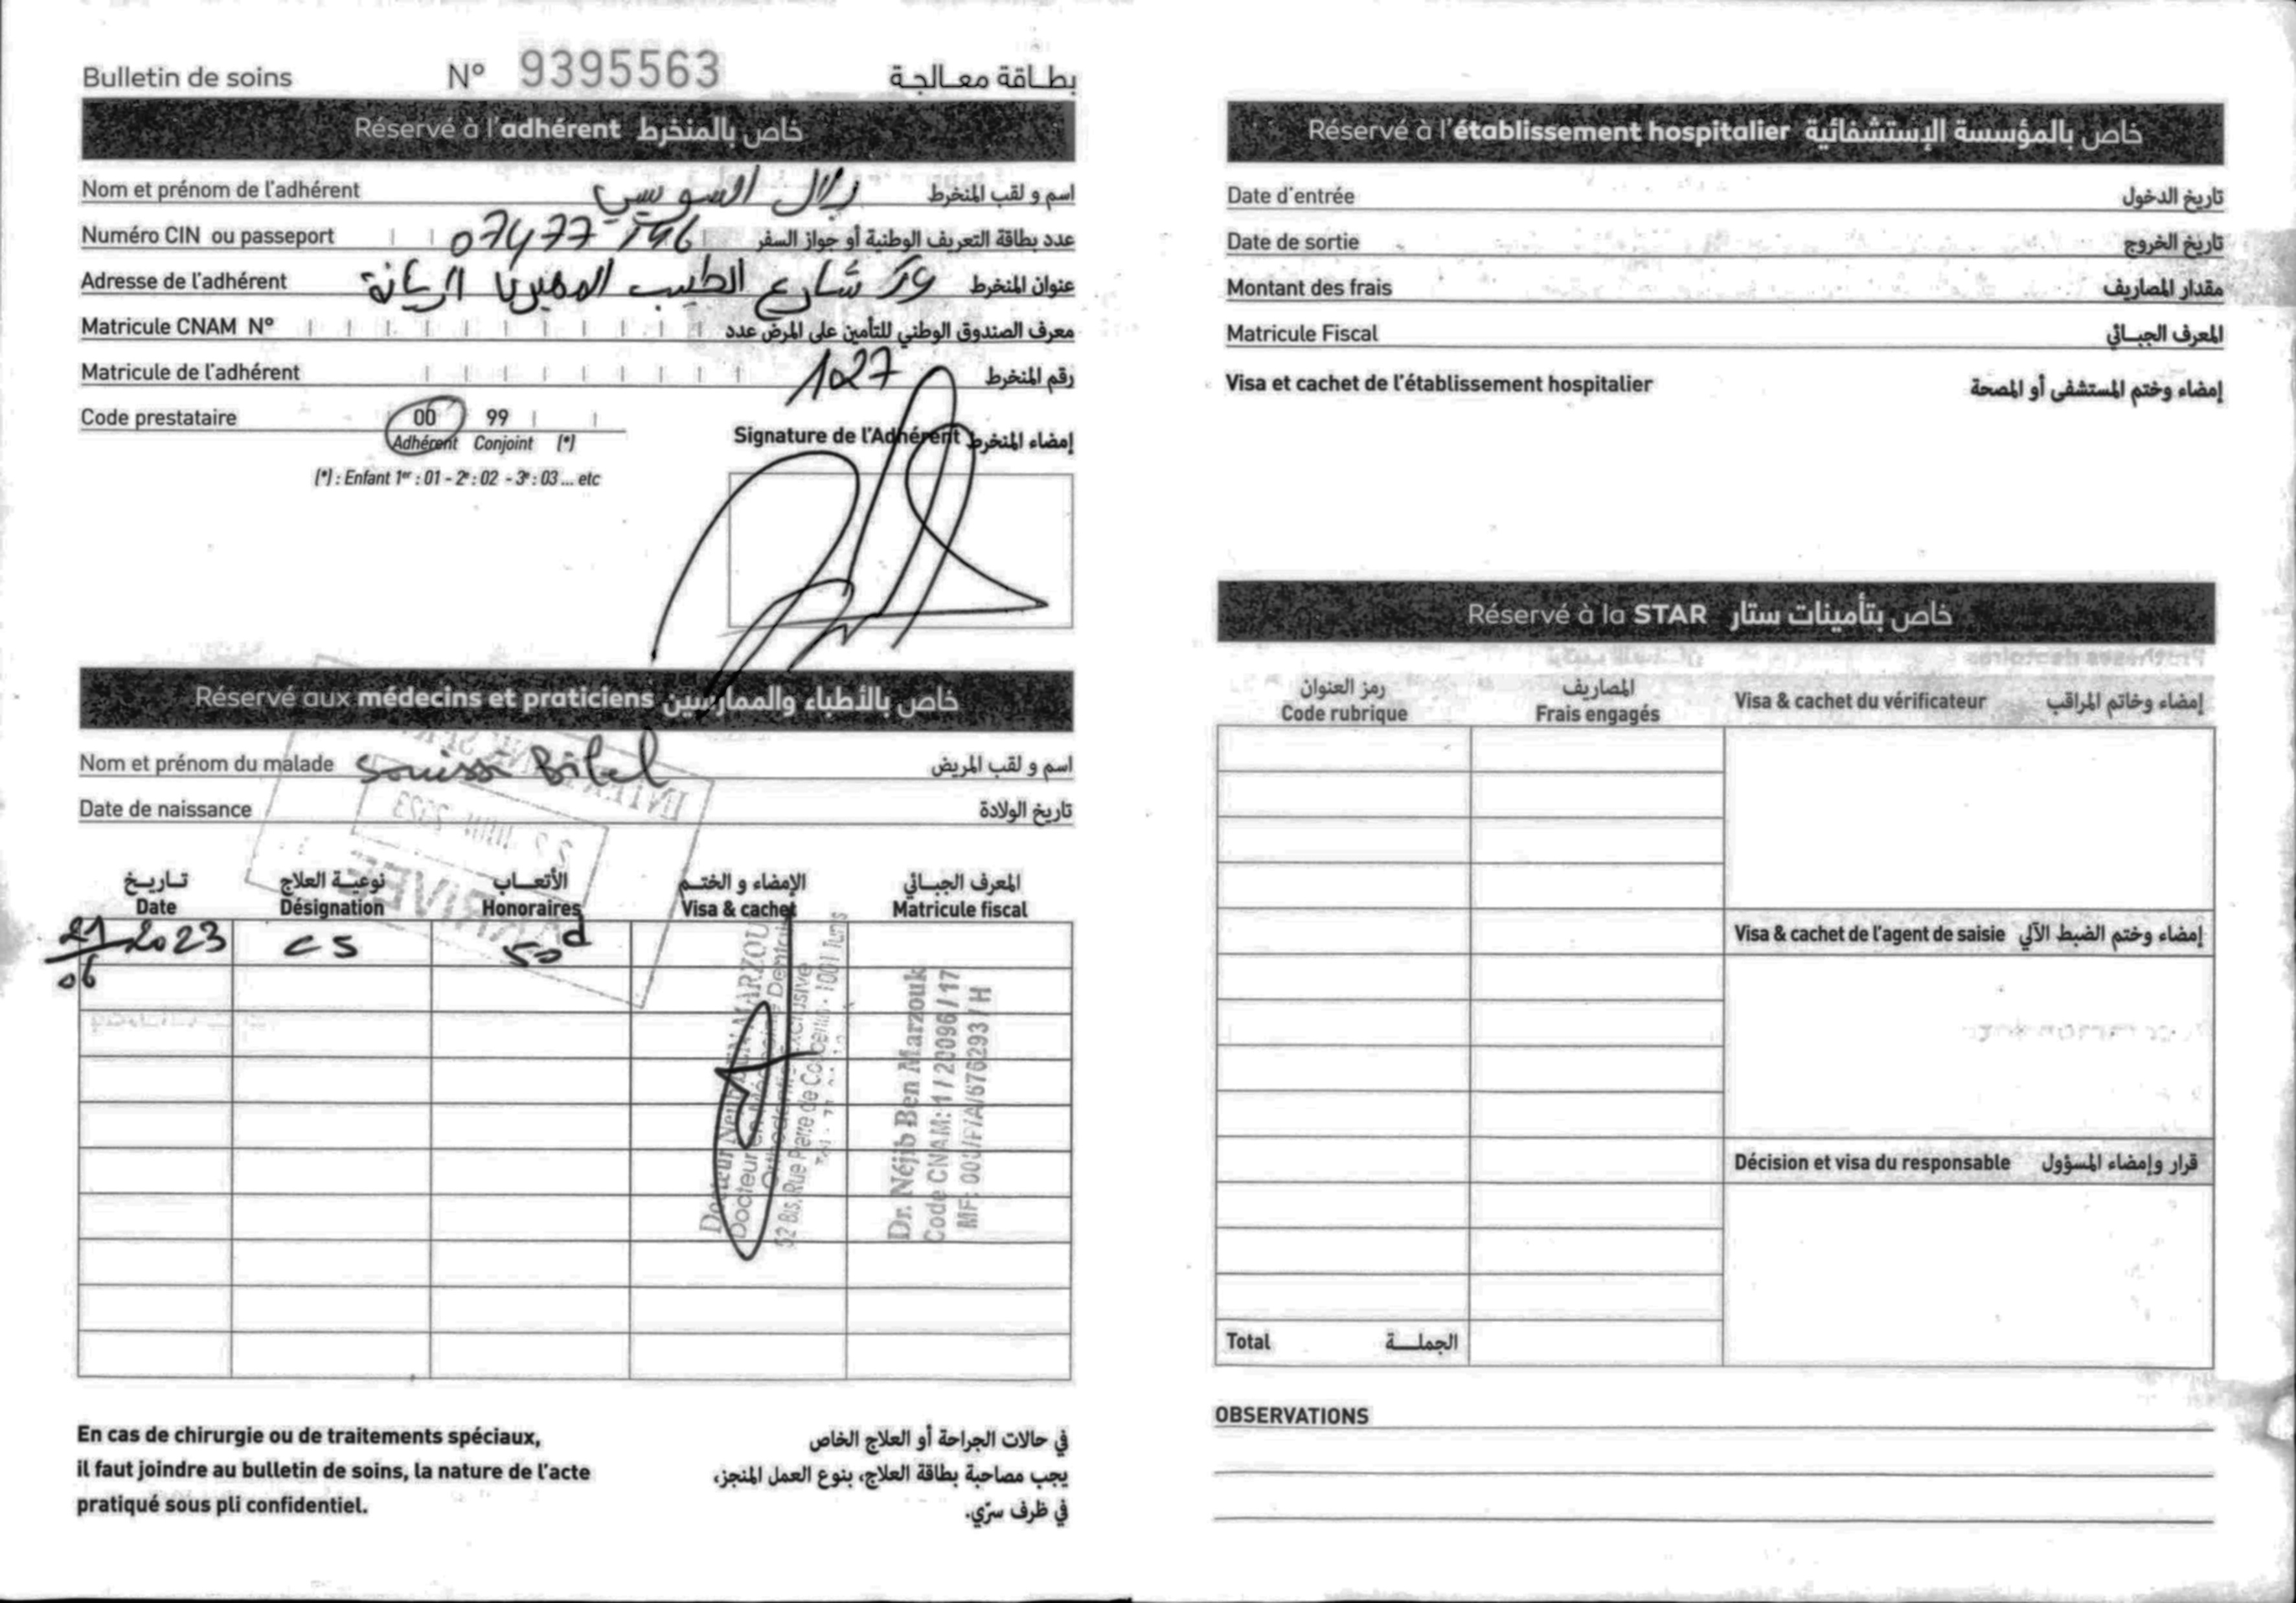 Bulletin de soins N° 9395563 بطاقة معالجة
Réservé à l'adhérent خاص بالمنخرط
Nom et prénom de l'adhérent بلال السويسي اسم و لقب المنخرط
Numéro CIN ou passeport عدد بطاقة التعريف الوطنية أو جواز السفر
Adresse de l'adhérent شارع الطيب المهيري أريانة عنوان المنخرط
Matricule CNAM N° معرف الصندوق الوطني للتأمين على المرض عدد
Matricule de l'adhérent 1027 رقم المنخرط
Code prestataire 00 99
Adhérent Conjoint (*)
(*) : Enfant 1er : 01 - 2e : 02 - 3e : 03 ... etc
Signature de l'Adhérent إمضاء المنخرط
Réservé aux médecins et praticiens خاص بالأطباء والممارسين
Nom et prénom du malade Souissi Bilel اسم و لقب المريض
Date de naissance تاريخ الولادة
تاريخ نوعية العلاج الأتعاب الإمضاء و الختم المعرف الجبائي
Date Désignation Honoraires Visa & cachet Matricule fiscal
21/06 2023 CS 50d
Docteur Néjib BEN MARZOUK
Docteur en Médecine Dentaire
Orthodontie Exclusive
52 Bis, Rue Pierre de Coubertin - 1001 Tunis
Dr. Néjib Ben Marzouk
Code CNAM: 1 / 20096 / 17
MF: 000/P/A/676293 / H
En cas de chirurgie ou de traitements spéciaux,
il faut joindre au bulletin de soins, la nature de l'acte
pratiqué sous pli confidentiel.
في حالات الجراحة أو العلاج الخاص
يجب مصاحبة بطاقة العلاج، بنوع العمل المنجز،
في ظرف سرّي.
Réservé à l'établissement hospitalier خاص بالمؤسسة الإستشفائية
Date d'entrée تاريخ الدخول
Date de sortie تاريخ الخروج
Montant des frais مقدار المصاريف
Matricule Fiscal المعرف الجبائي
Visa et cachet de l'établissement hospitalier إمضاء وختم المستشفى أو المصحة
Réservé à la STAR خاص بتأمينات ستار
رمز العنوان المصاريف
Code rubrique Frais engagés Visa & cachet du vérificateur إمضاء وخاتم المراقب
Visa & cachet de l'agent de saisie إمضاء وختم الضبط الآلي
Décision et visa du responsable قرار وإمضاء المسؤول
Total الجملة
OBSERVATIONS